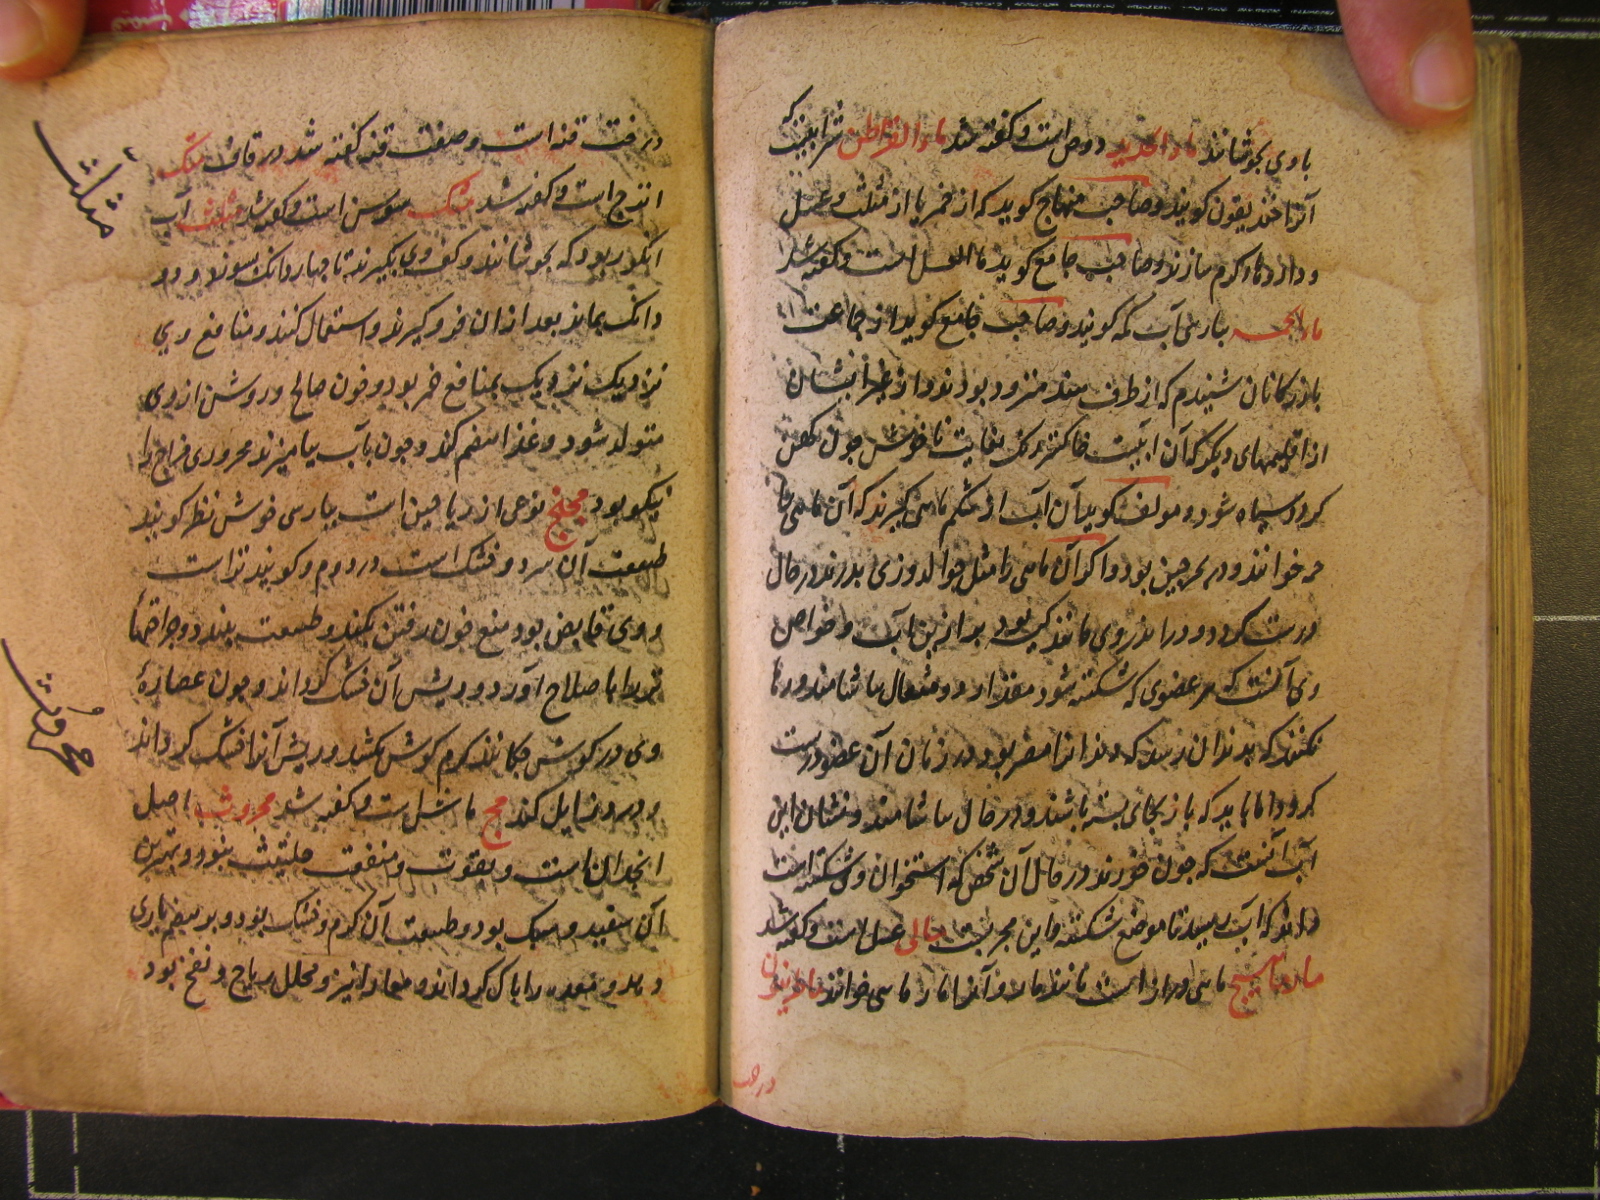 باوی بجوشانند ماء الحدید دوص است و گفته شد ماء القراطن شرابیست که
آنرا خندیقون گویند و صاحب منهاج گوید که از خمر یا از مثلث و عسل
و داروهاء گرم سازند و صاحب جامع گوید ماء العسل است و گفته شد
ماء الجمه بپارسی آب جمه گویند و صاحب جامع گوید از جماعت
بازرگانان شنیدم که از طرف هند مترود بودند و از غیر ایشان
از اقلیمهای دیگر که آن ابیست خاکستررنک بغایت ناخوش چون کهن
کردد سیاه شود و مولف گوید آن آب از شکم ماهی گیرند که آن ماهی را
جمه خوانند و در بحر چین بود و اگر آن ماهی را مثل جوالدوزی بدرند در حال
درست کردد و درا بدر روی مانند کیسه بود پر ازین آب و خواص
وی آنست که هر عضوی که شکسته شود مقدار دو مثقال بیاشامند و رها
نکنند که بدندان رسد که دندانرا مضر بود در زمان آن عضو درست
کردد اما باید که باز بجای بسته باشند و در حال بیاشامند و نشان این
آب آنست که چون خورند در حال آن شخص که استخوان وی شکسته است
داند که آب رسید تا موضع شکسته و این مجربست مالی عسل است و گفته شد
مارماهیج ماهی دراز است مانند مار و آنرا مار ماهی خوانند مازریون
درخت
درخت قنه است و صفت قنه گفته شد در قاف متک
اترج است و گفته شد متک سوسن است و گفته شد مثلث آب
انگور بود که بجوشانند و کف وی بگیرند تا چهار دانک بسوزد و دو
دانک بماند بعد از ان فرو گیرند و استعمال کنند و منافع وی
نزدیک نزدیک بمنافع خمر بود و خون صالح و روشن از وی
متولد شود و غذا هضم کند و چون با آب بیامیزند محروری مزاج را
نیکو بود مجلنج نوعی از ریاحین است بپارسی خوش نظر گویند
طبیعت آن سرد و خشک است در دوم و گویند تر است
و وی قابض بود منع خون رفتن بکند و طبیعت ببندد و جراحتها
تر را با صلاح آورد و ریش آن خشک گرداند و چون عصاره
وی در کوش چکانند کرم کوش بکشد و ریش آنرا خشک کرداند
و درد زایل کند مج ماش است و گفته شد محروث اصل
انجدان است و بقوت و منفعت حلتیت بود و بهترین
آن سفید و سبک بود و طبیعت آن گرم و خشک بود و بوییدن یاری
دهد و معده را پاک گرداند و طعام را نیز و محلل ریاح و نفخ بود
مثلث
محروث